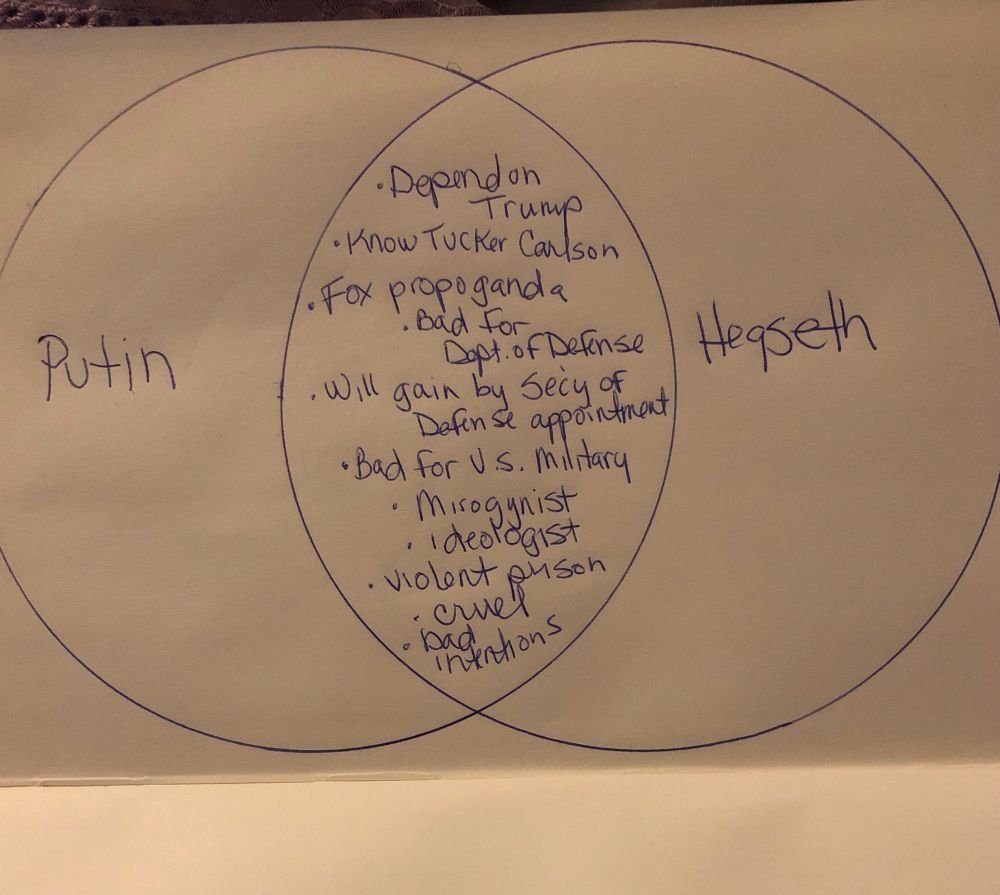 • Depend on
Trump
• Know Tucker Carlson
• Fox propoganda
• Bad for
Dept. of Defense
Putin
Hegseth
• Will gain by Sec'y of
Defense appointment
• Bad for U.S. Military
• Misogynist
• ideologist
• violent person
• cruel
• bad
intentions